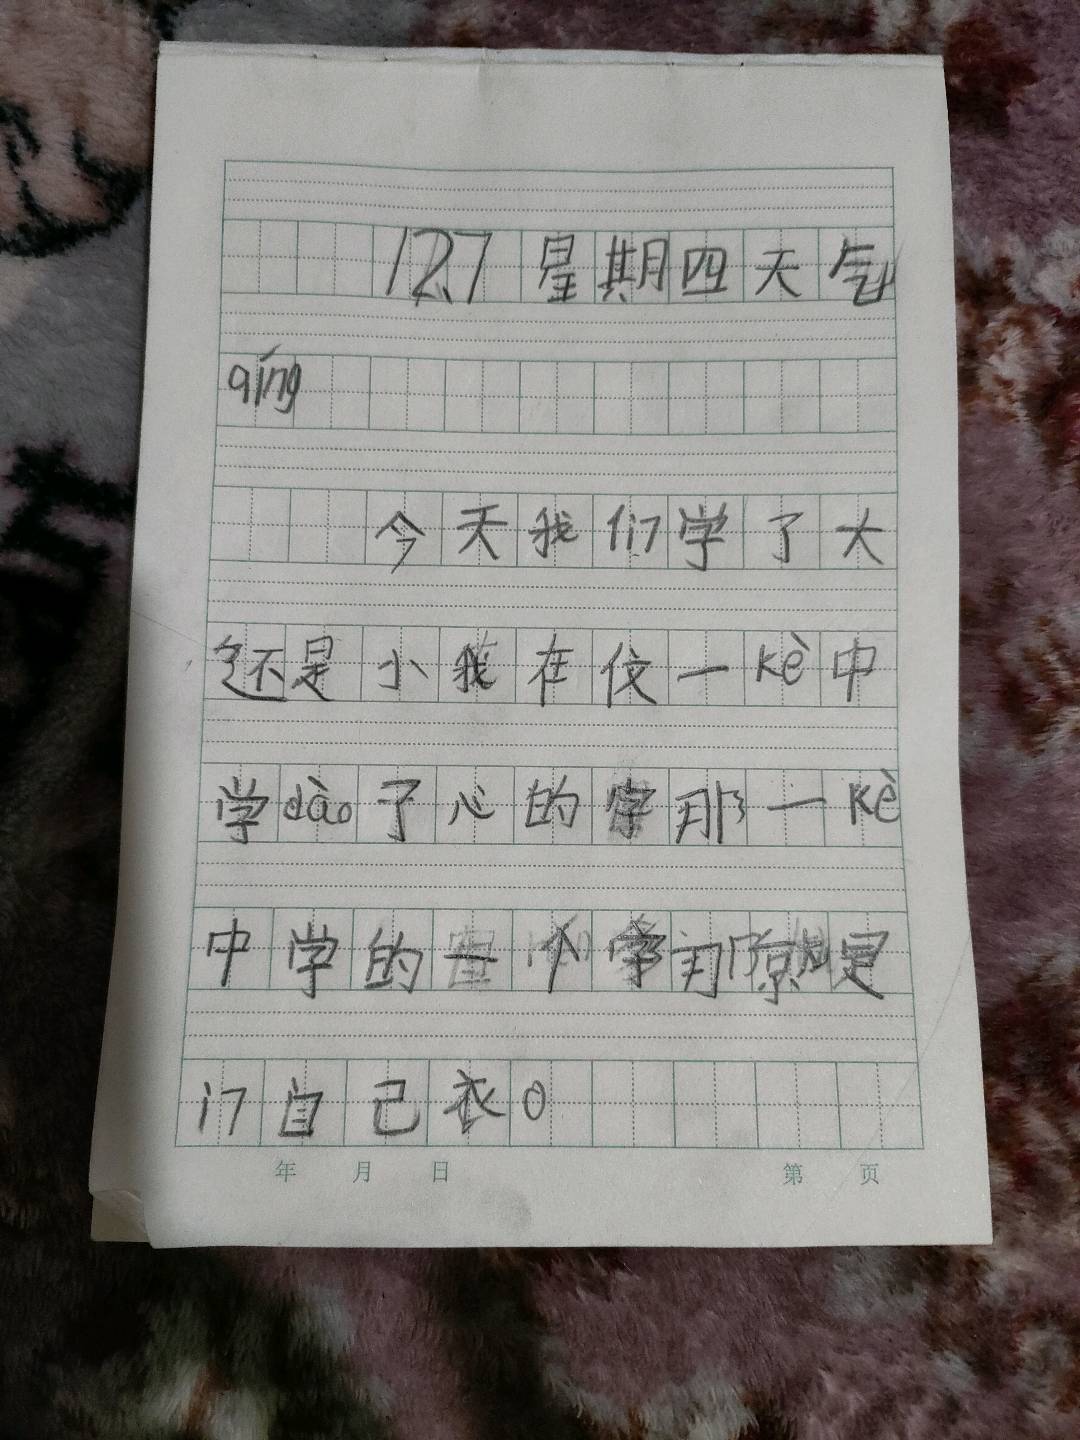 12.7 星期四天气
qíng
今天我们学了大
还是小我在仪一kè中
学dào了心的字那一kè
中学的一个字那
自己衣。
年 月 日 第 页